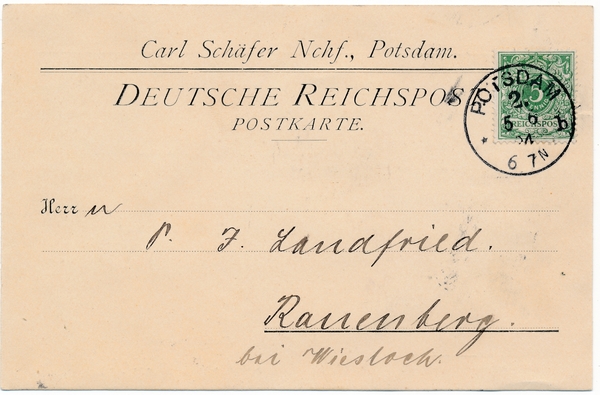 Carl Schäfer Nchf., Potsdam.
DEUTSCHE REICHSPOST
POSTKARTE.
5
REICHSPOST
POTSDAM
2.
5 6 b
94
6 7N
Herrn
P. J. Landfried.
Rauenberg.
bei Wiesloch.